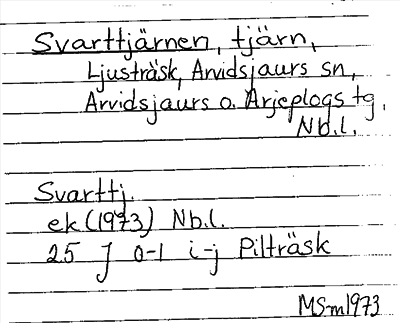 Svarttjärnen, tjärn,
Ljusträsk, Arvidsjaurs sn,
Arvidsjaurs o. Arjeplogs tg.
Nb.l.
Svarttj.
ek (1973) Nb.l.
25 J 0-1 i-j Pilträsk
MS-m1973